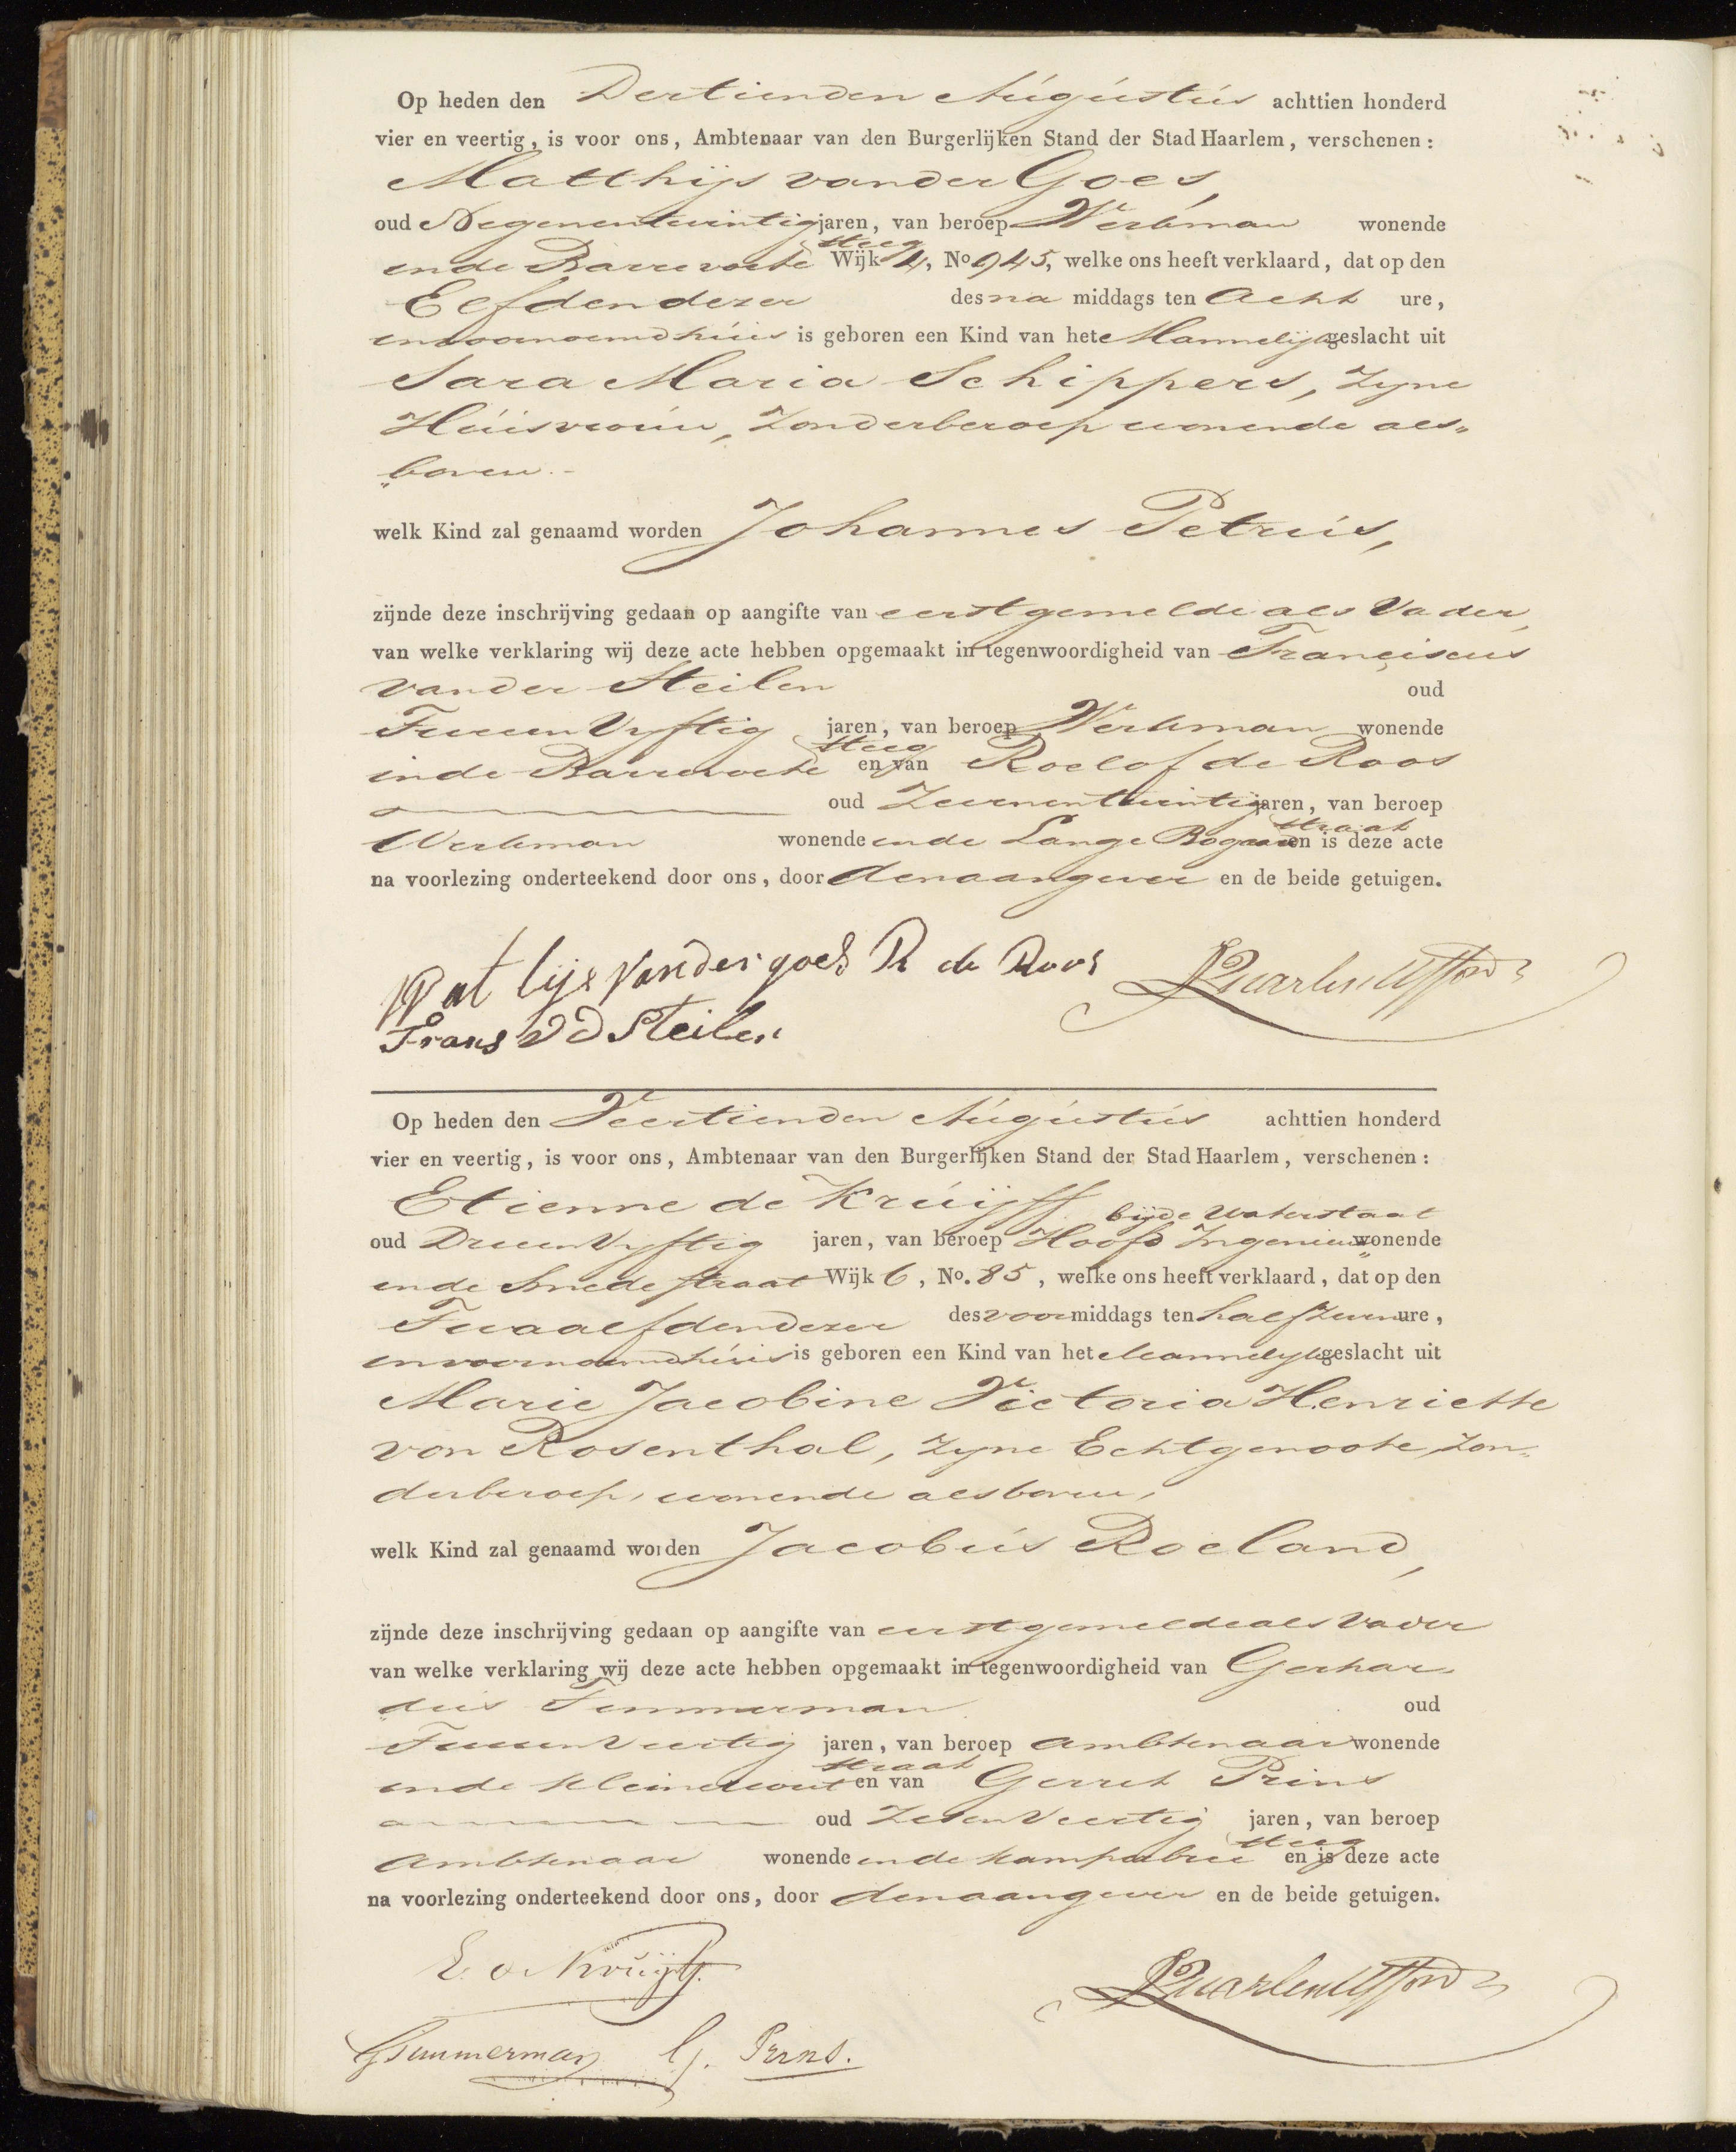 Op heden den Dertienden Augustus achttien honderd
vier en veertig, is voor ons, Ambtenaar van den Burgerlijken Stand der Stad Haarlem, verschenen:
Matthijs van der Goes,
oud Negenentwintig jaren, van beroep Werkman wonende
in de Barrevoete steeg Wijk 4, No 945, welke ons heeft verklaard, dat op den
Elfden dezer des na middags ten Acht ure,
in voornoemd huis is geboren een Kind van het Mannelijk geslacht uit
Sara Maria Schippers, zyne
Huisvrouw, zonder beroep wonende als„
„boven.-
welk Kind zal genaamd worden Johannes Petrus,
zijnde deze inschrijving gedaan op aangifte van eerstgemelde als Vader,
van welke verklaring wij deze acte hebben opgemaakt in tegenwoordigheid van Franciscus
van der Steilen oud
Twee en Vyftig jaren, van beroep Werkman wonende
in de Barrevoete steeg en van Roelof de Roos
oud Zevenentwintig jaren, van beroep
Werkman wonende in de Lange Bogaard straat en is deze acte
na voorlezing onderteekend door ons, door den aangever en de beide getuigen.
Mat tijs van der goes R de Roos
Frans V D Steilen
Op heden den Veertienden Augustus achttien honderd
vier en veertig, is voor ons, Ambtenaar van den Burgerlijken Stand der Stad Haarlem, verschenen:
Etienne de Kruijff
bij de Waterstaat
oud Drie en Vyftig jaren, van beroep Hoofd Ingenieur wonende
in de Smedestraat Wijk 6, No. 85, welke ons heeft verklaard, dat op den
Twaalfden dezer des voor middags ten half zeven ure,
in voornoemd huis is geboren een Kind van het Mannelyk geslacht uit
Marie Jacobine Victoria Henriette
von Rosenthal, zyne Echtgenoote, zon„
derberoep, wonende als boven,
welk Kind zal genaamd worden Jacobus Roeland,
zijnde deze inschrijving gedaan op aangifte van eerstgemelde als Vader
van welke verklaring wij deze acte hebben opgemaakt in tegenwoordigheid van Gerhar„
„dus Timmerman oud
Twee en Veertig jaren, van beroep Ambtenaar wonende
in de Kleine Hout straat en van Gerret Prins
oud Zes en Veertig jaren, van beroep
Ambtenaar wonende in de Kamper steeg en is deze acte
na voorlezing onderteekend door ons, door den aangever en de beide getuigen.
E. d Kruijff.
GTimmerman G. Prins.